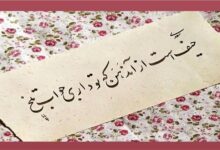 حیف است از آن دهن که تو داری جواب تلخ